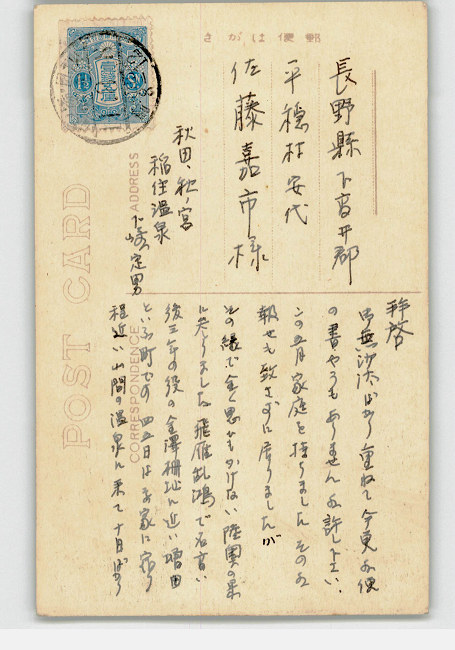 郵便はがき
長野縣下高井郡
平穏村安代
佐藤嘉市様
秋田、秋ノ宮
稲住温泉
定男
拝啓
御無沙汰ばかり重ねて今更お便
の書やうもありません お許し下さい、
この五月家庭を持ちました そのお
報せも致さずに居りましたが
その縁で全く思ひもかけない陸奥の果
に参りました 飛雁乱鴻で名高い
後三年の役の金澤柵址に近い増田
といふ町での四五日は家に宿り
程近い山間の温泉に来て十日ばかり
POST CARD
ADDRESS
CORRESPONDENCE